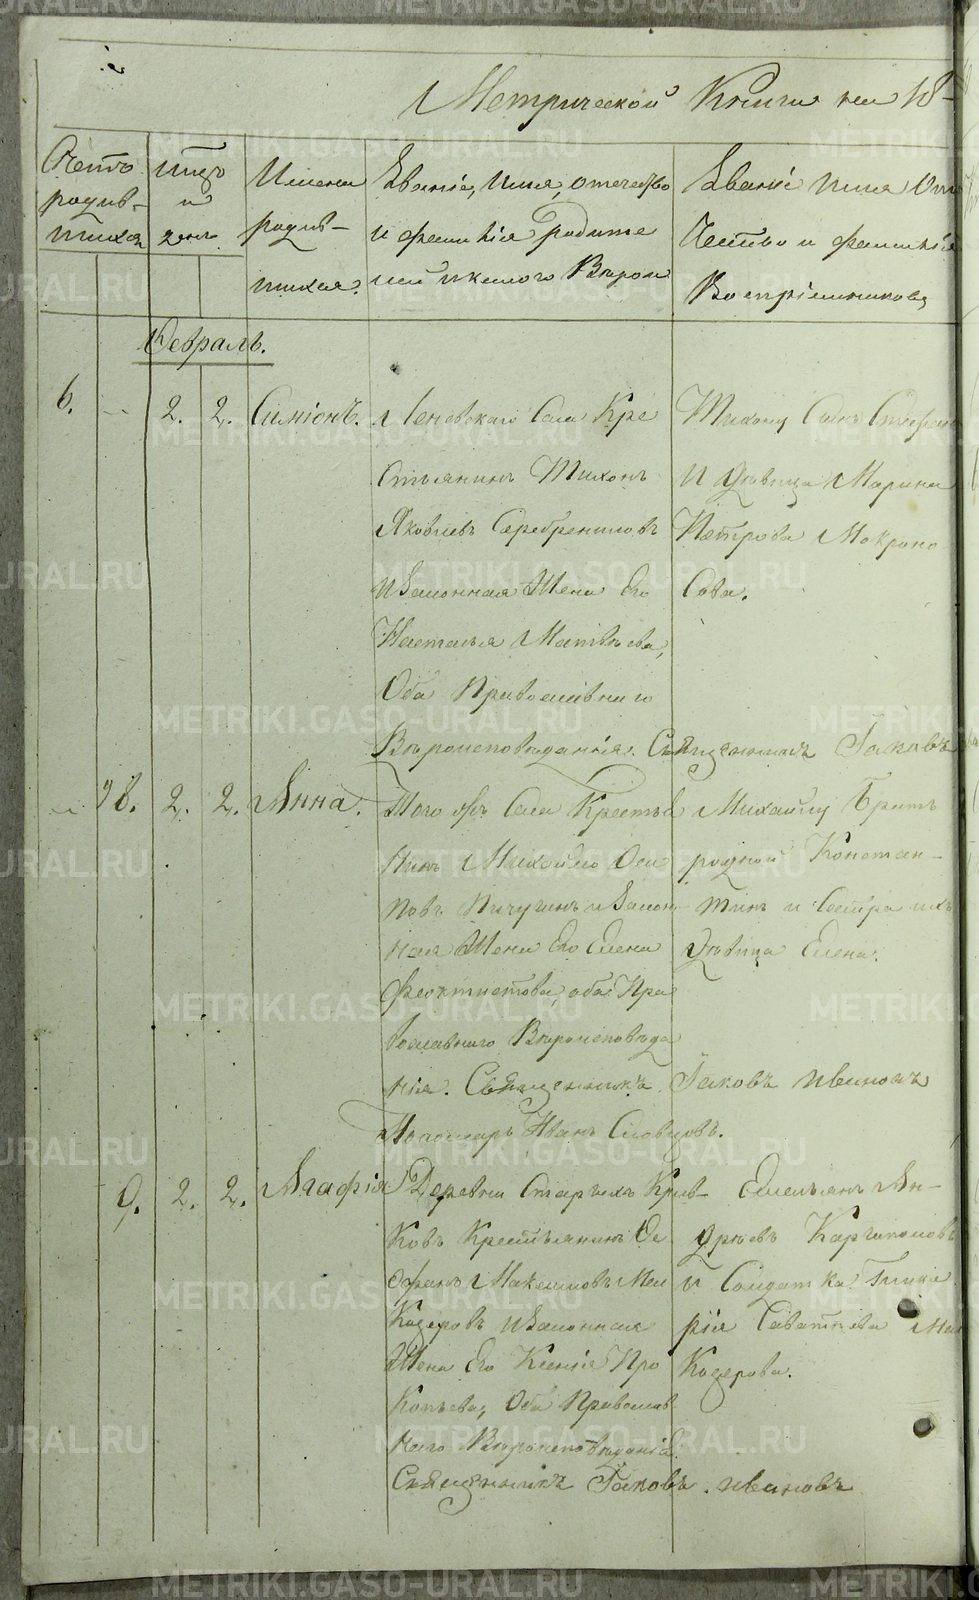 Метрической Книги на 18
Счетъ
родив-
шихся
мсцъ
и
день
Имена
родив-
шихся.
Званіе, Имя, отечество
и фамилія Родите
лей и какого Вѣрои
Званіе имя От
чество и фамилія
Воспріемниковъ
Февраль.
6. 2. 2. Симіонъ.
Леневскаго Села Кре
стьянинъ Тихонъ
Яковлевъ Серебрениковъ
и Законная Жена Его
Наталья Матвѣева,
Оба Православнаго
Вѣроисповѣданія. Священникъ Іаковъ
Тихону Сынъ Стефанъ
и дѣвица Марина
Петрова Мокроно
сова.
8. 2. 2. Анна.
Того жъ Села Крестья
нинъ Михайло Оси
повъ Пичугинъ и Закон
ная Жена Его Елена
Феоктистова, оба Пра
вославнаго Вѣроисповѣда
нія. Священникъ Іаковъ Ивановъ
Пономарь Иванъ Словцовъ.
Михайлу Братъ
родной Констан-
тинъ и Сестра ихъ
дѣвица Елена.
9. 2. 2. Агафія
Деревни Старыхъ Крив-
ковъ Крестьянинъ
Макеровъ и Законная
Жена Его Ксенія Про
копьева, Оба Православ
наго Вѣроисповѣданія
Священникъ Іаковъ Ивановъ
Емельянъ Ан-
дреевъ Каргополовъ
и Солдатка Глике
рія Саватѣева Ма
керова.
METRIKI.GASO-URAL.RU